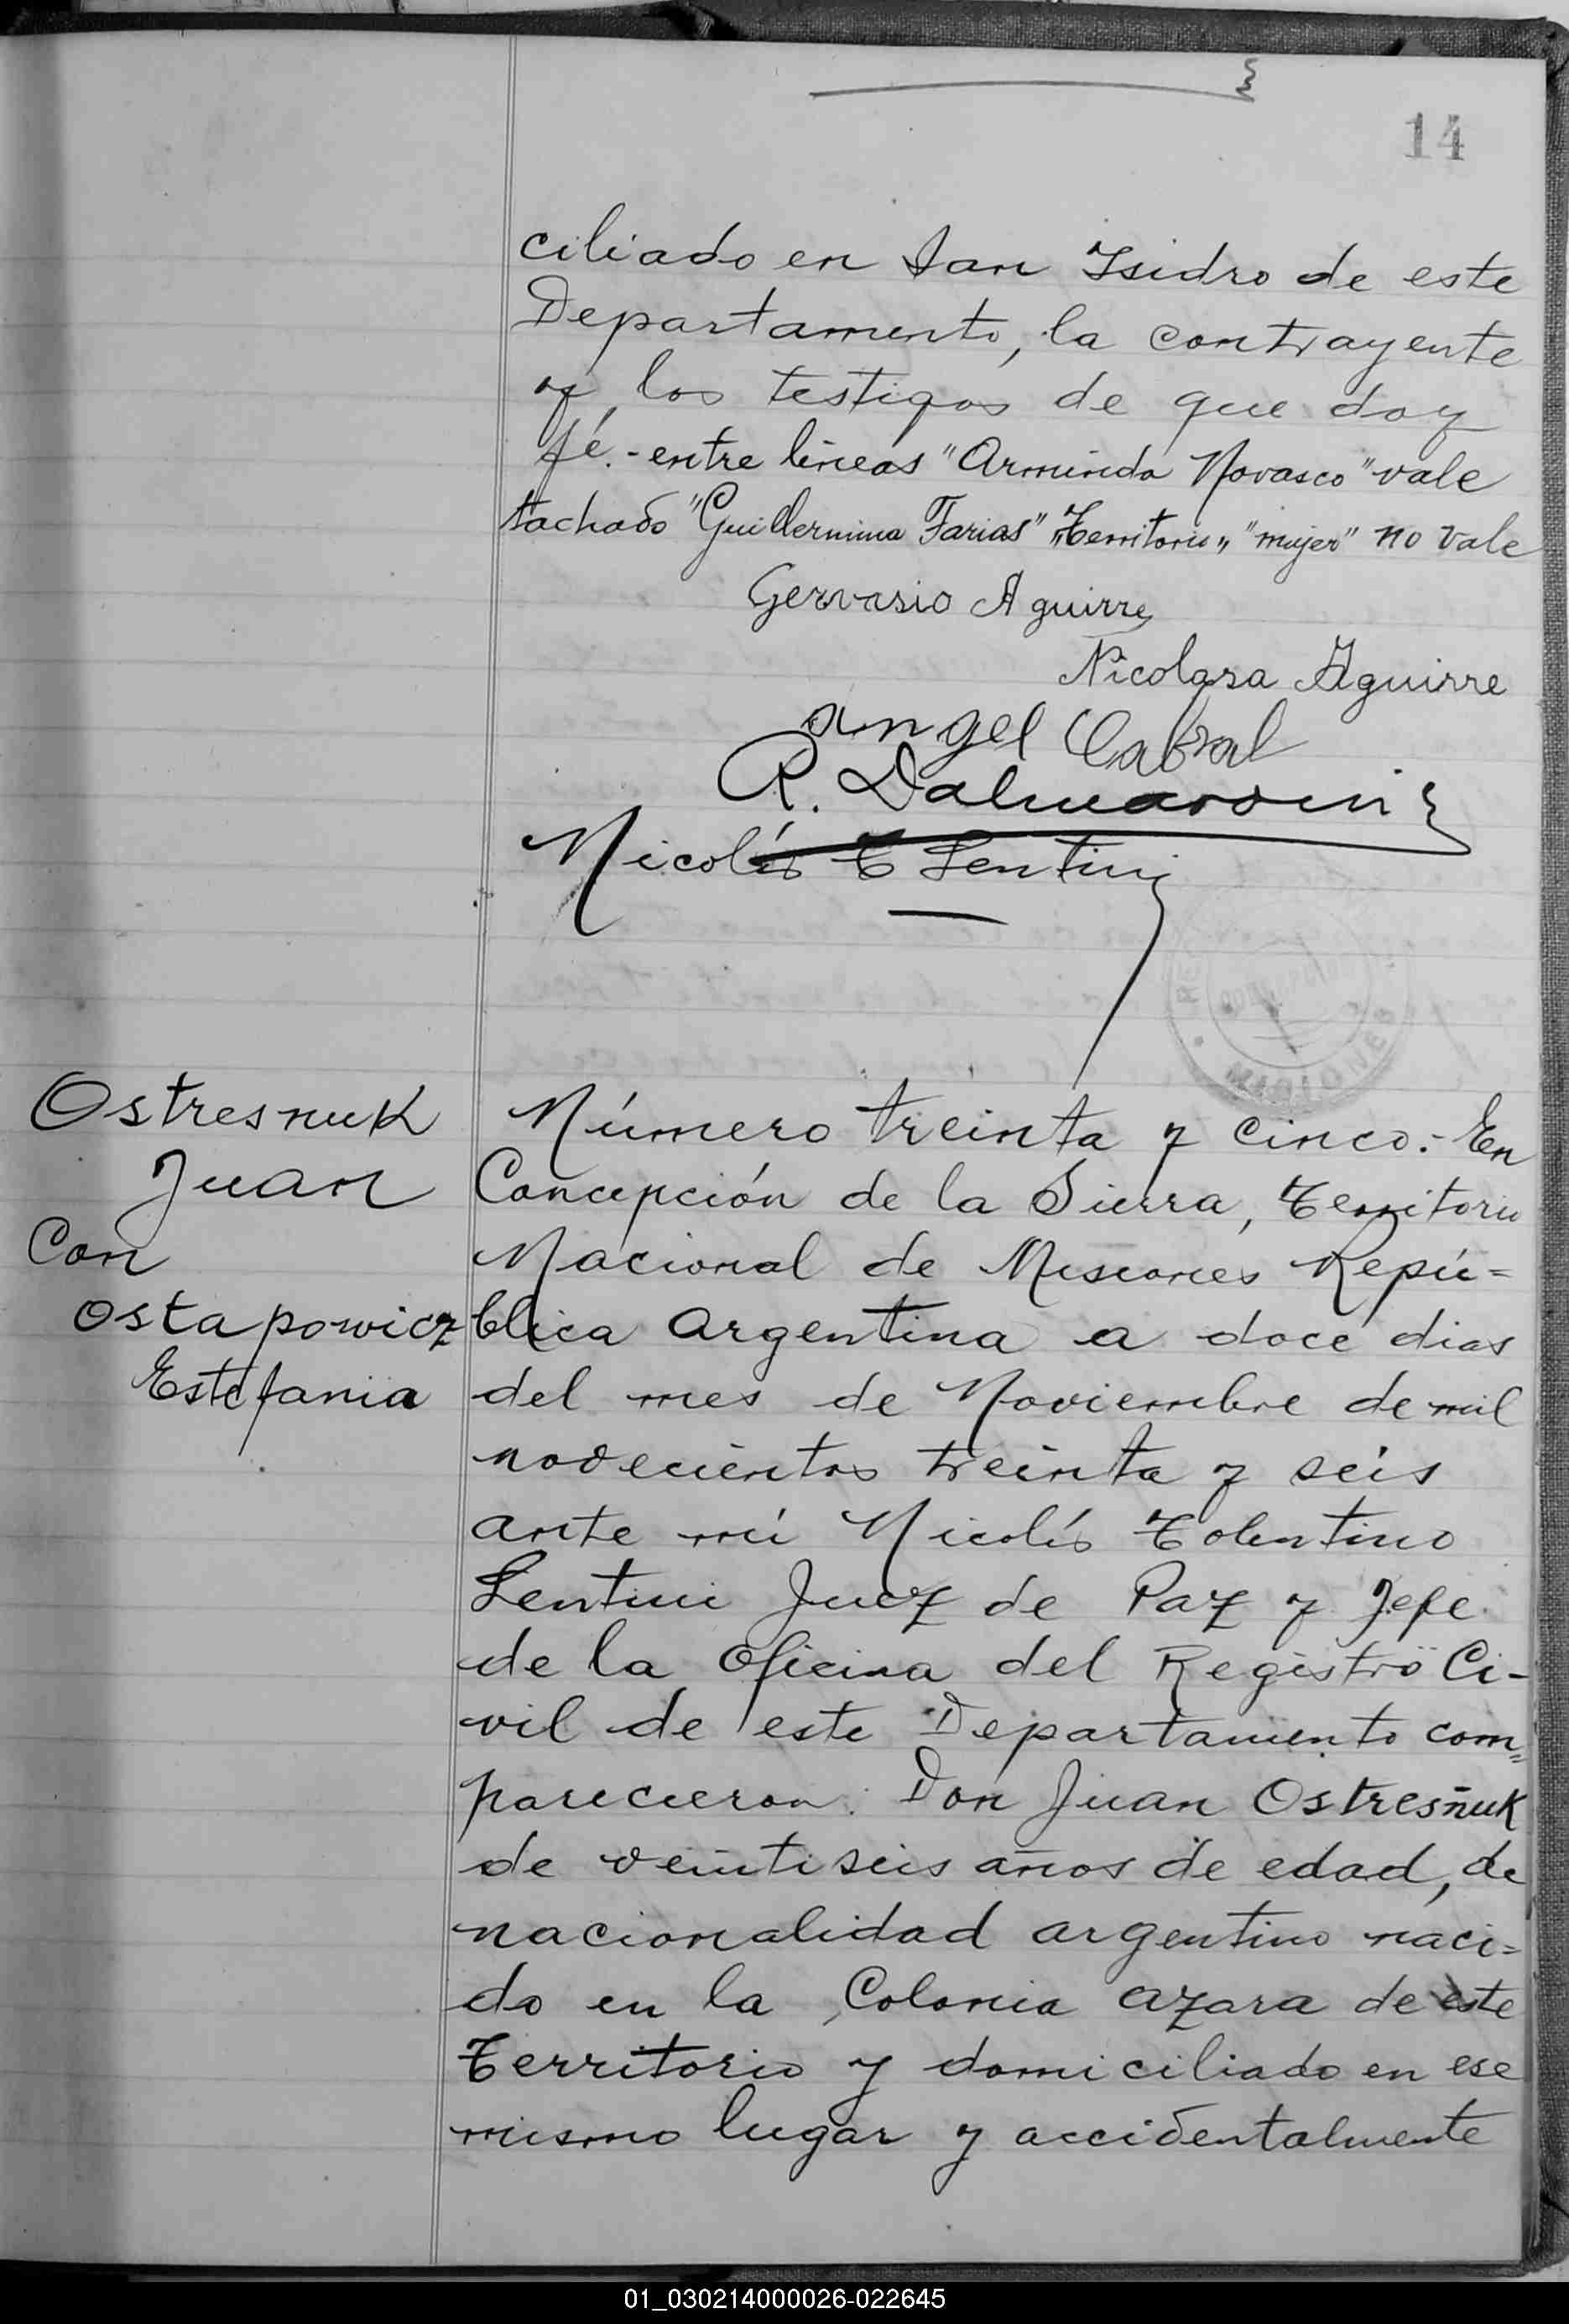 14
ciliado en San Isidro de este
Departamento, la contrayente
y los testigos de que doy
fé.- entre lineas "Arminda Novasco" vale
tachado "Guillermina Farias" "Territorio" "mujer" no vale
Gervasio Aguirre
Nicolasa Aguirre
angel Cabral
R. Dalmaroni
Nicolás T Lentini
MISIONES
Ostresnuk
Juan
Con
Ostapowicz
Estefania
Número treinta y cinco.- En
Concepción de la Sierra, Territorio
Nacional de Misiones Repú=
blica Argentina a doce dias
del mes de Noviembre de mil
novecientos treinta y seis
ante mí Nicolás Tolentino
Lentini Juez de Paz y Jefe
de la Oficina del Registro Ci-
vil de este Departamento com=
parecieron: Don Juan Ostresñuk
de veintiseis años de edad, de
nacionalidad argentino naci=
do en la Colonia Azara de este
Territorio y domiciliado en ese
mismo lugar y accidentalmente
01_030214000026-022645